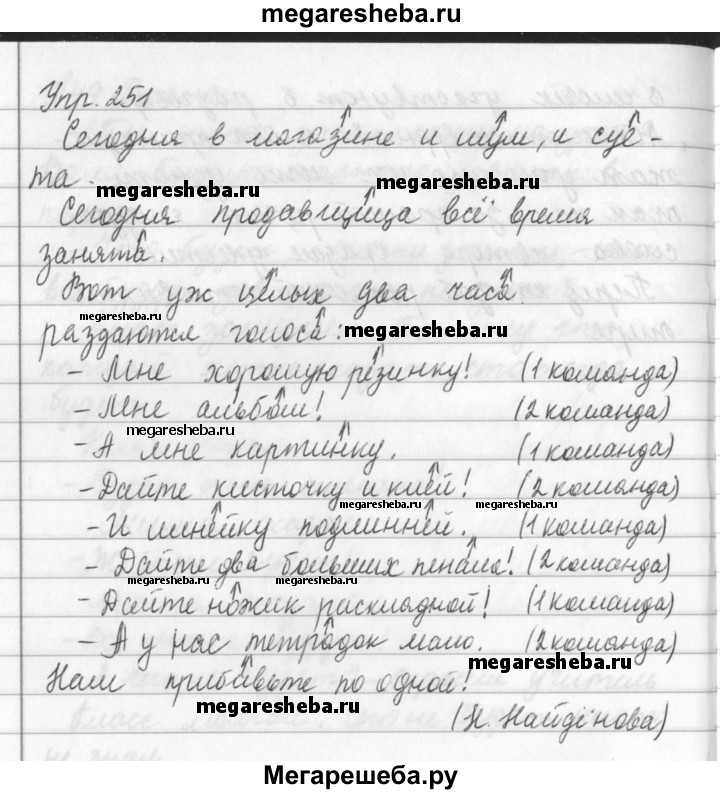 megaresheba.ru
Упр. 251
Сегодня в магазине и шум, и суе-
та.
megaresheba.ru
megaresheba.ru
Сегодня продавщица всё время
занята.
Вот уж целых два часа
раздаются голоса:
megaresheba.ru
- Мне хорошую резинку! (1 команда)
- Мне альбом! (2 команда)
megaresheba.ru
- А мне картинку. (1 команда)
- Дайте кисточку и клей! (2 команда)
megaresheba.ru
megaresheba.ru
- И линейку подлинней. (1 команда)
- Дайте два больших пенала! (2 команда)
megaresheba.ru
megaresheba.ru
- Дайте ножик раскладной! (1 команда)
- А у нас тетрадок мало. (2 команда)
megaresheba.ru
Нам прибавьте по одной!
megaresheba.ru
(Н. Найдёнова)
Мегарешеба.ру